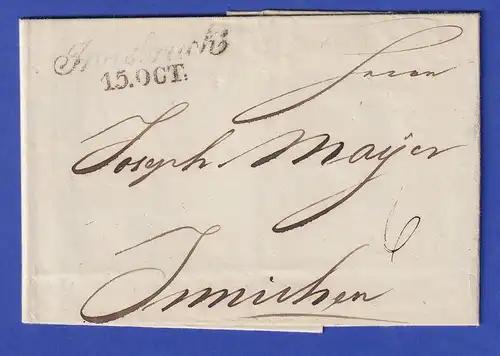 Innsbruck
15.OCT.
Herrn
Joseph Mayer
6
Innichen